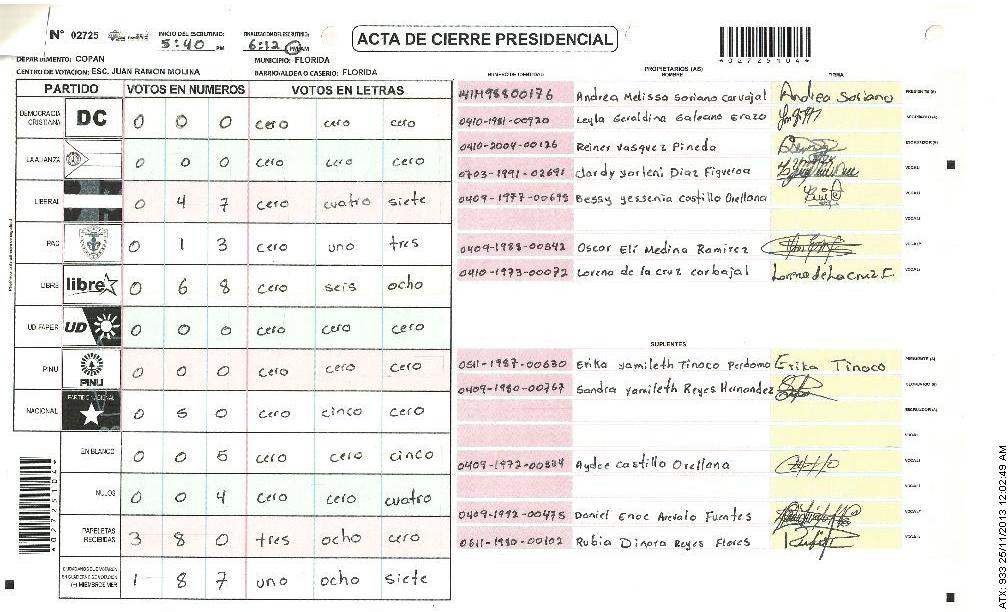 N° 02725 INICIO DEL ESCRUTINIO: 5:40 PM FINALIZACION DEL ESCRUTINIO: 6:12 PM/AM
ACTA DE CIERRE PRESIDENCIAL
*02725104*
DEPARTAMENTO: COPAN MUNICIPIO: FLORIDA
CENTRO DE VOTACION: ESC. JUAN RAMON MOLINA BARRIO/ALDEA O CASERIO: FLORIDA
PARTIDO VOTOS EN NUMEROS VOTOS EN LETRAS
DEMOCRACIA CRISTIANA DC 0 0 0 cero cero cero
LA ALIANZA 0 0 0 cero cero cero
LIBERAL 0 4 7 cero cuatro siete
PAC 0 1 3 cero uno tres
LIBRE libre 0 6 8 cero seis ocho
UD FAPER UD 0 0 0 cero cero cero
PINU PINU 0 0 0 cero cero cero
NACIONAL PARTIDO NACIONAL 0 5 0 cero cinco cero
EN BLANCO 0 0 5 cero cero cinco
NULOS 0 0 4 cero cero cuatro
PAPELETAS RECIBIDAS 3 8 0 tres ocho cero
CIUDADANOS QUE VOTARON EN CUADERNO DE VOTACION (+) MIEMBROS MER 1 8 7 uno ocho siete
*02725104*
NUMERO DE IDENTIDAD PROPIETARIOS (AS) NOMBRE FIRMA
Andrea Melissa Soriano Carvajal Andrea Soriano PRESIDENTE (A)
0410-1981-00920 Leyla Geraldina Galeano Erazo SECRETARIO (A)
0410-2004-00126 Reiner Vasquez Pineda ESCRUTADOR (A)
0703-1991-02691 Clardy Yorleni Diaz Figueroa VOCAL I
0409-1977-00698 Bessy Yessenia Castillo Orellana VOCAL
VOCAL
0409-1988-00342 Oscar Eli Medina Ramirez VOCAL
0410-1973-00072 Lorena de la cruz carbajal Lorena de La Cruz C. VOCAL
SUPLENTES
0511-1987-00630 Erika Yamileth Tinoco Perdomo Erika Tinoco PRESIDENTE (A)
0409-1980-00767 Sandra Yamileth Reyes Hernandez SECRETARIO (A)
ESCRUTADOR (A)
VOCAL
0409-1972-00384 Aydee Castillo Orellana VOCAL
VOCAL
0409-1992-00475 Daniel Enoc Arevalo Fuentes VOCAL
0611-1980-00102 Rubia Dinora Reyes Flores VOCAL
ATX: 933 25/11/2013 12:02:49 AM